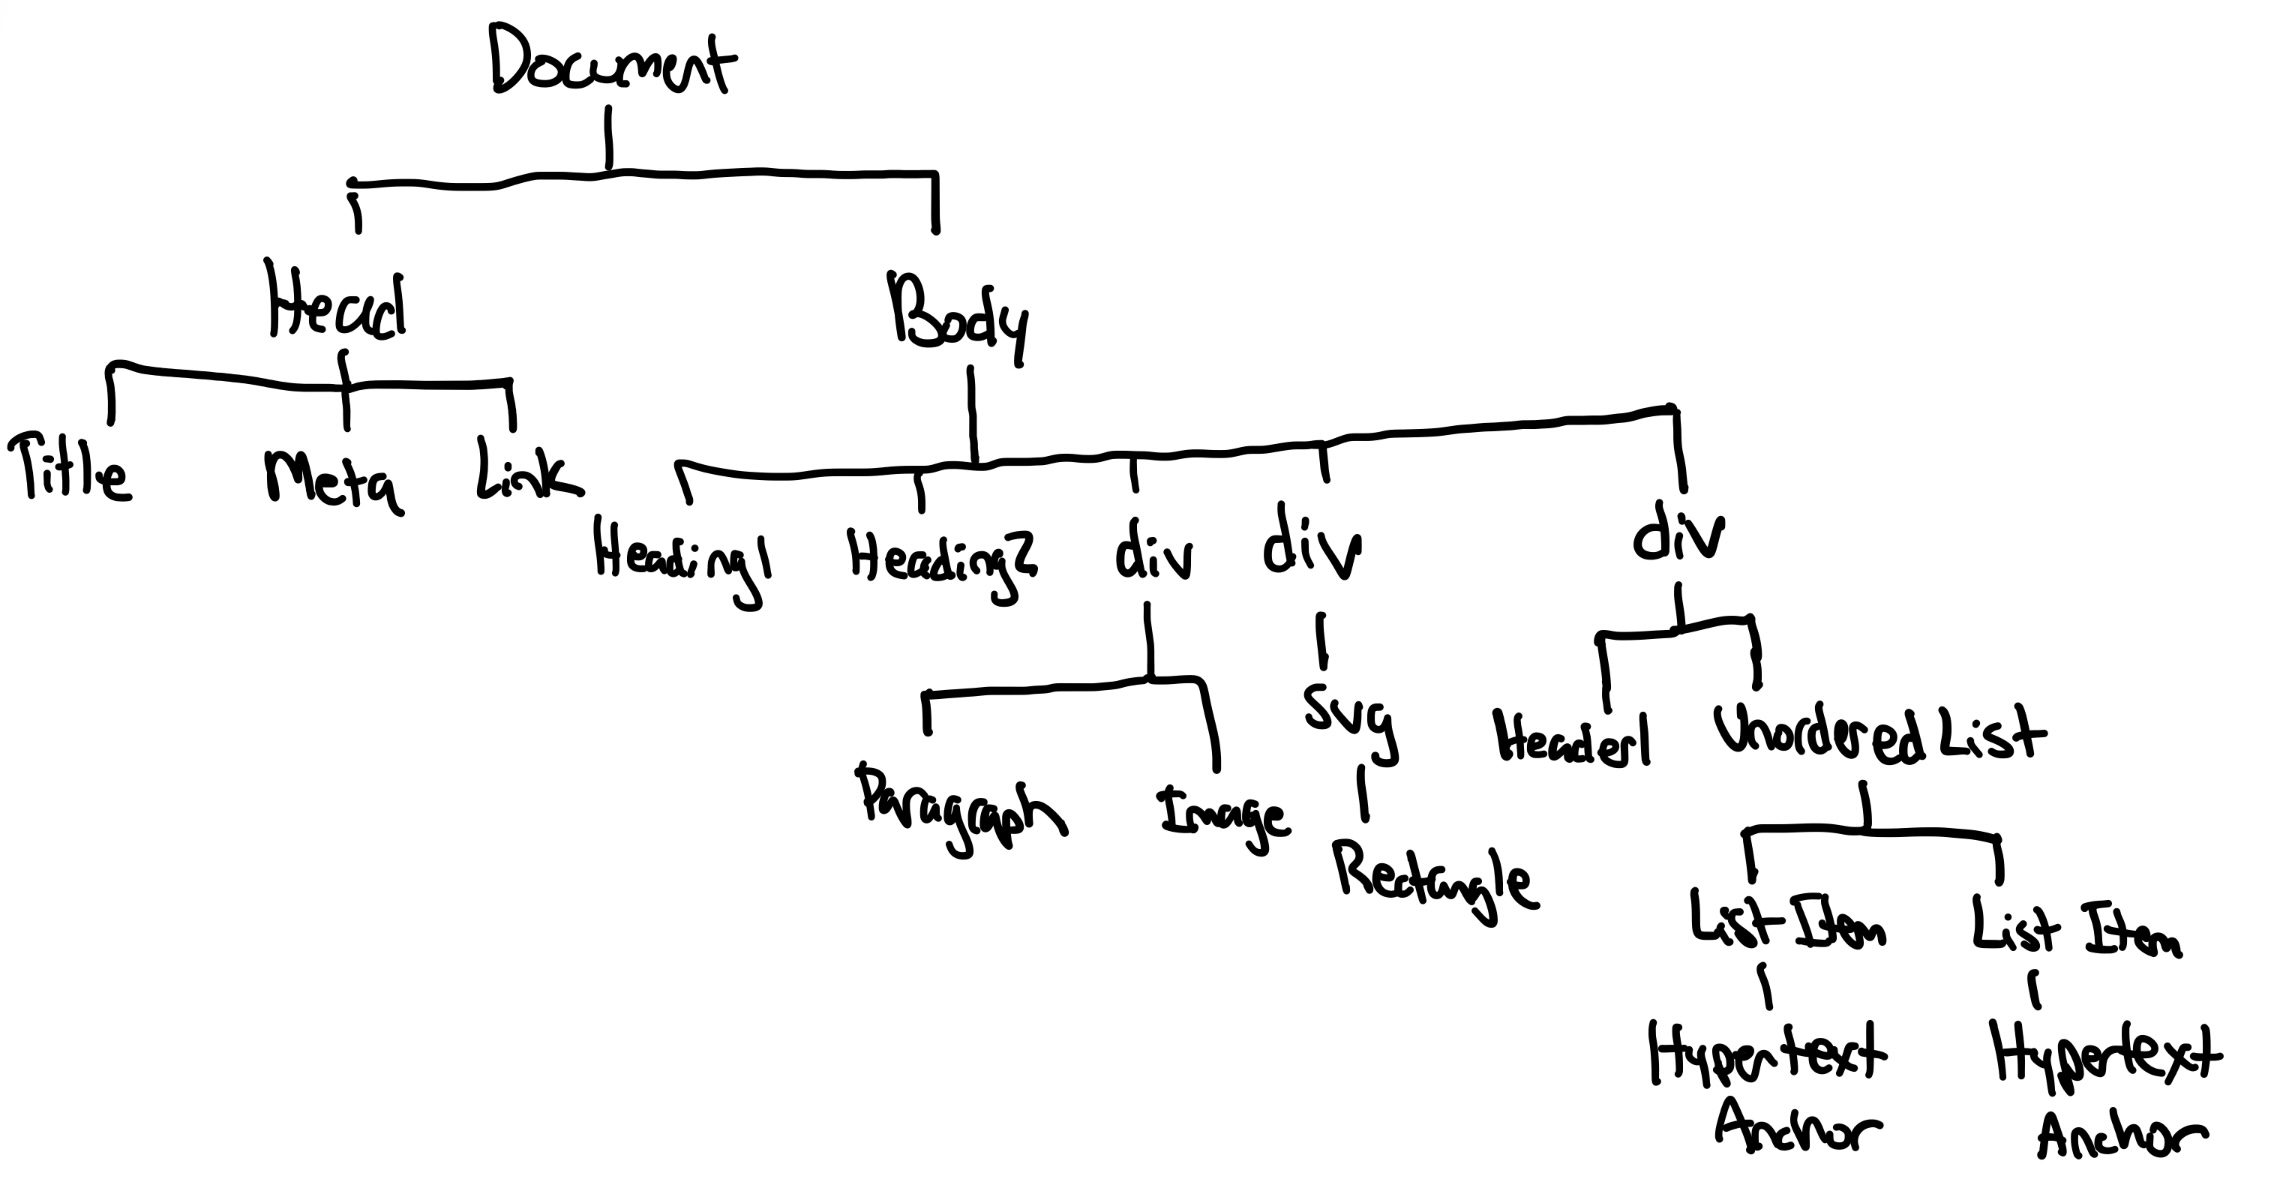 Document
Head
Body
Title
Meta
Link
Heading1
Heading2
div
div
div
Paragraph
Image
svg
Rectangle
Header1
Unordered List
List Item
List Item
Hypertext
Anchor
Hypertext
Anchor